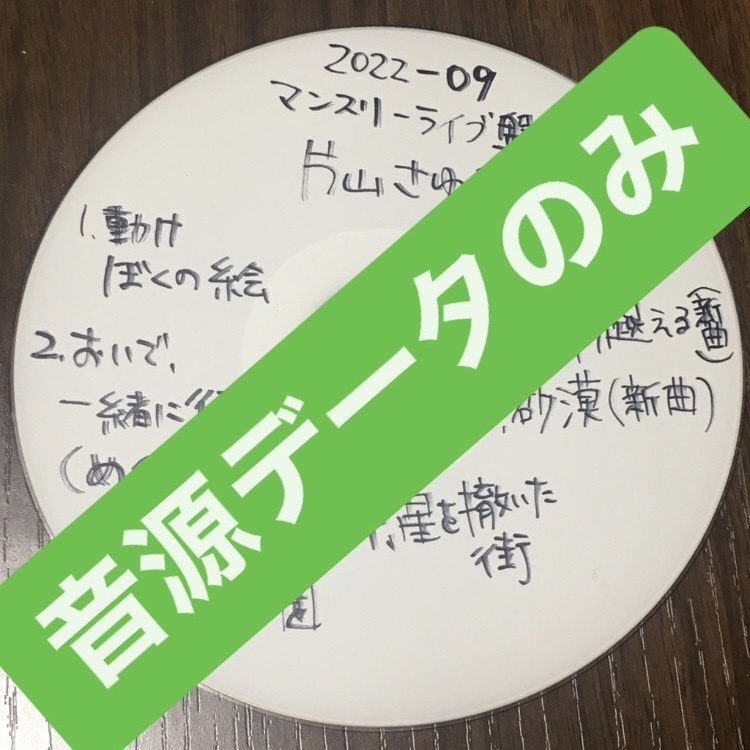 2022-09
マンスリーライブ盤
片山さゆ
1.動け
ぼくの絵
2.おいで、
一緒に
(め
越える(新曲)
砂漠(新曲)
星を撒いた
街
音源データのみ